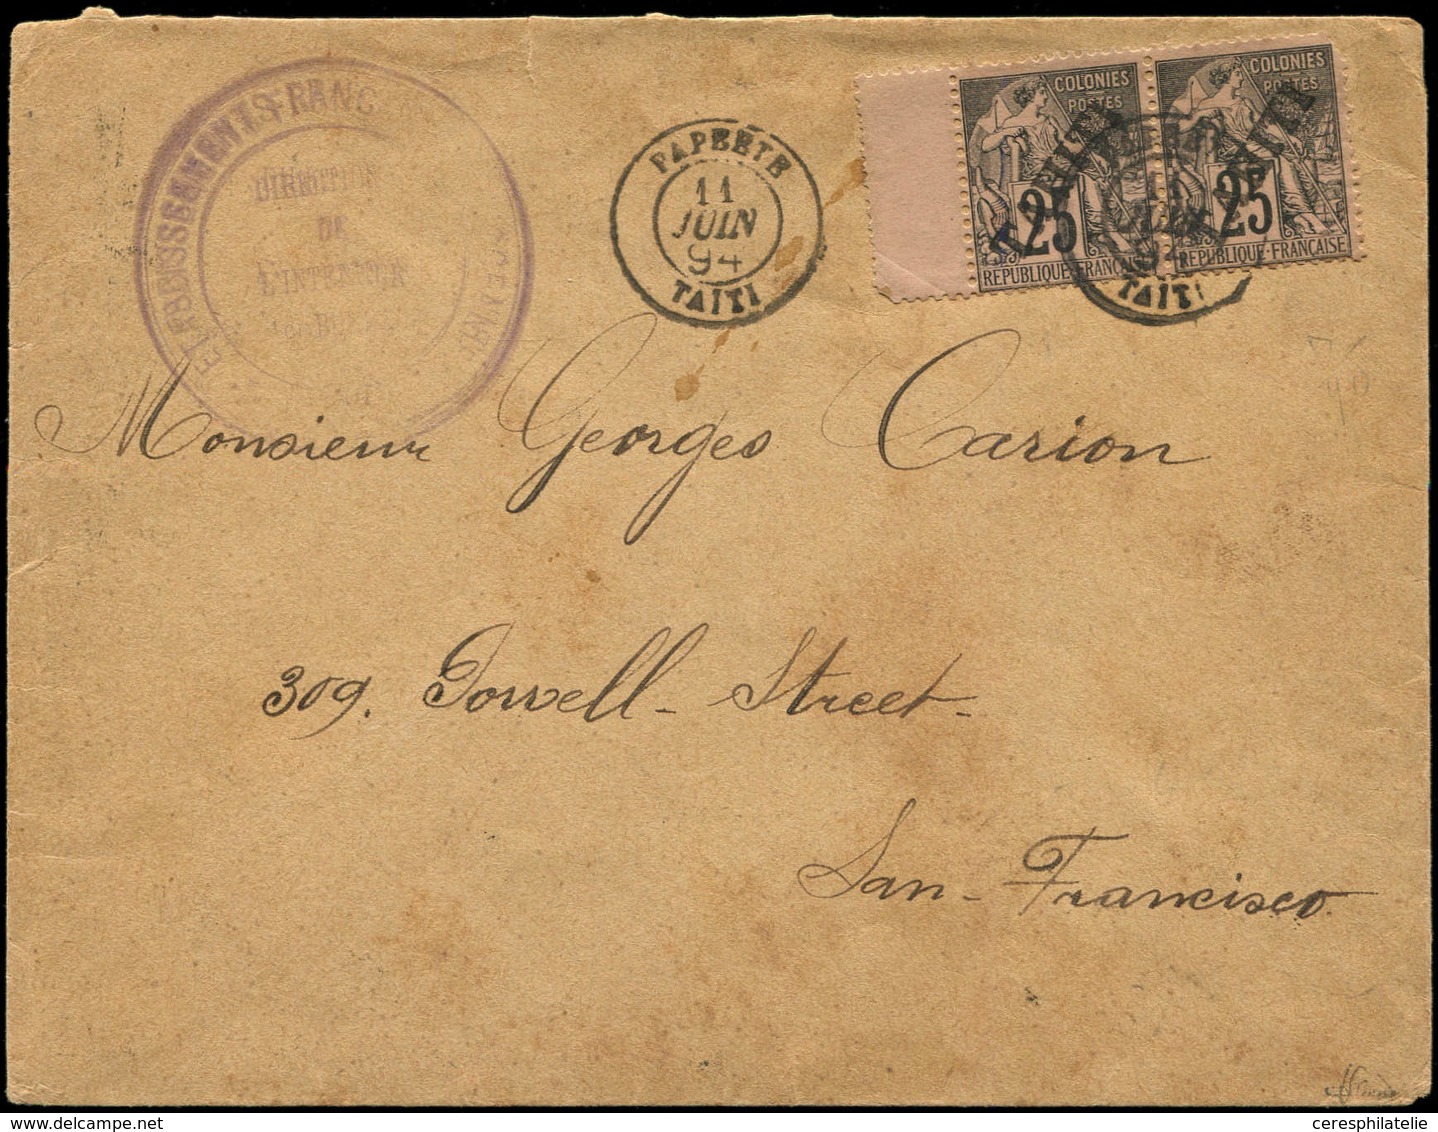 ETABLISSEMENTS FRANC
DIRECTION
DE
L'INTERIEUR
PAPEETE
11
JUIN
94
TAÏTI
COLONIES
POSTES
TAHITI
25
REPUBLIQUE-FRANÇAISE
COLONIES
POSTES
TAHITI
25
REPUBLIQUE-FRANÇAISE
11
JUIN
94
TAÏTI
Monsieur Georges Carion
309. Powell-Street-
San-Francisco
ceresphilatelie